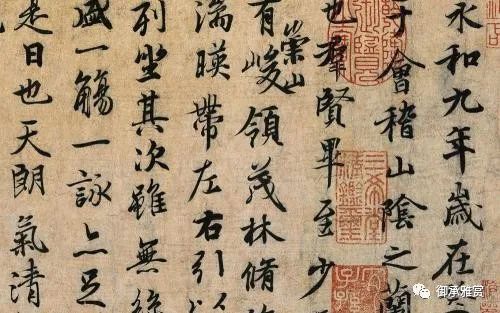 永和九年歲在
于會稽山陰之蘭
也羣賢畢至少
有崇山峻領茂林脩
湍暎帶左右引以
列坐其次雖無絲
盛一觴一詠亦足
是日也天朗氣清
三希堂精鑑璽
御承雅赏